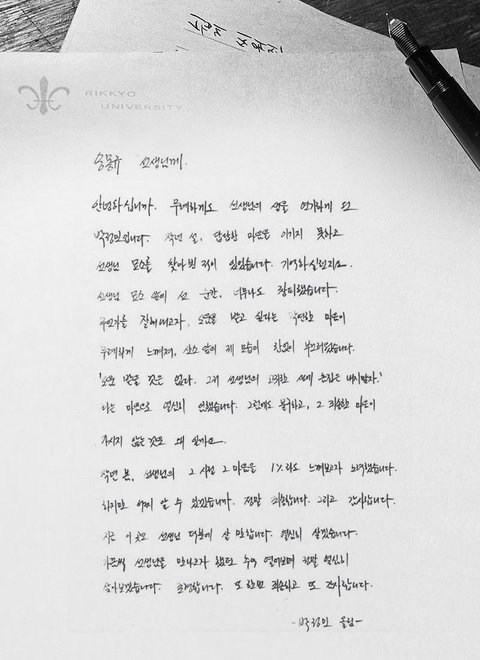 RIKKYO
UNIVERSITY
송몽규 선생님께.
안녕하십니까. 무례하게도 선생님의 생을 연기하게 된
박정민입니다. 작년 설, 답답한 마음을 이기지 못하고
선생님 묘소를 찾아 뵌 적이 있었습니다. 기억하실런지요.
선생님 묘소 앞에 선 순간, 너무나도 창피했습니다.
무언가를 잘해내고자, 도움을 받고 싶다는 막연한 마음이
무례하게 느껴져, 산소 앞의 제 모습이 한없이 부끄러워졌습니다.
'도움 받을 것은 없다. 그저 선생님의 고귀한 생에 흠집은 내지말자.'
라는 마음으로 열심히 연기했습니다. 그럼에도 불구하고, 그 죄송한 마음이
가시지 않는 것은 왜 일까요.
작년 봄, 선생님의 그 시절 그 마음을 1%라도 느껴보고자 노력했습니다.
하지만 어찌 알 수 있겠습니까. 정말 죄송합니다. 그리고 감사합니다.
지금 이 곳은 선생님 덕분에 살 만합니다. 열심히 살겠습니다.
선생님을 만나고자 했던 수업 열심히
살아보겠습니다. 또 한번 죄송하고 또 감사합니다.
-박정민 올림-